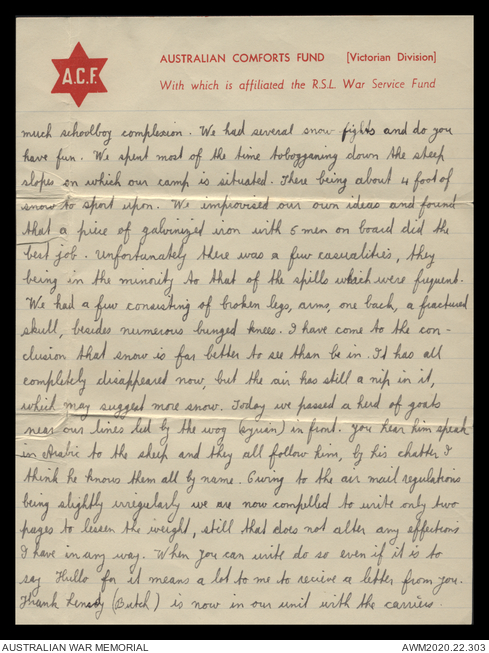 A.C.F.
AUSTRALIAN COMFORTS FUND [Victorian Division]
With which is affiliated the R.S.L. War Service Fund
much schoolboy complexion. We had several snow fights and do you
have fun. We spent most of the time tobogganing down the steep
slopes on which our camp is situated. There being about 4 foot of
snow to sport upon. We improvised our own ideas and found
that a piece of galvinized iron with 5 men on board did the
best job. Unfortunately there was a few casualities, they
being in the minority to that of the spills which were frequent.
We had a few consisting of broken legs, arms, one back, a fractured
skull, besides numerous bunged knees. I have come to the con-
clusion that snow is far better to see than be in. It has all
completely disappeared now, but the air has still a nip in it,
which may suggest more snow. Today we passed a herd of goats
near our lines led by the wog (Syrian) in front. You hear him speak
in Arabic to the sheep and they all follow him, by his chatter I
think he knows them all by name. Owing to the air mail regulations
being slightly irregularly we are now compelled to write only two
pages to lessen the weight, still that does not alter any affections
I have in any way. When you can write do so even if it is to
say Hullo for it means a lot to me to recieve a letter from you.
Frank (Butch) is now in our unit with the carriers.
AUSTRALIAN WAR MEMORIAL
AWM2020.22.303